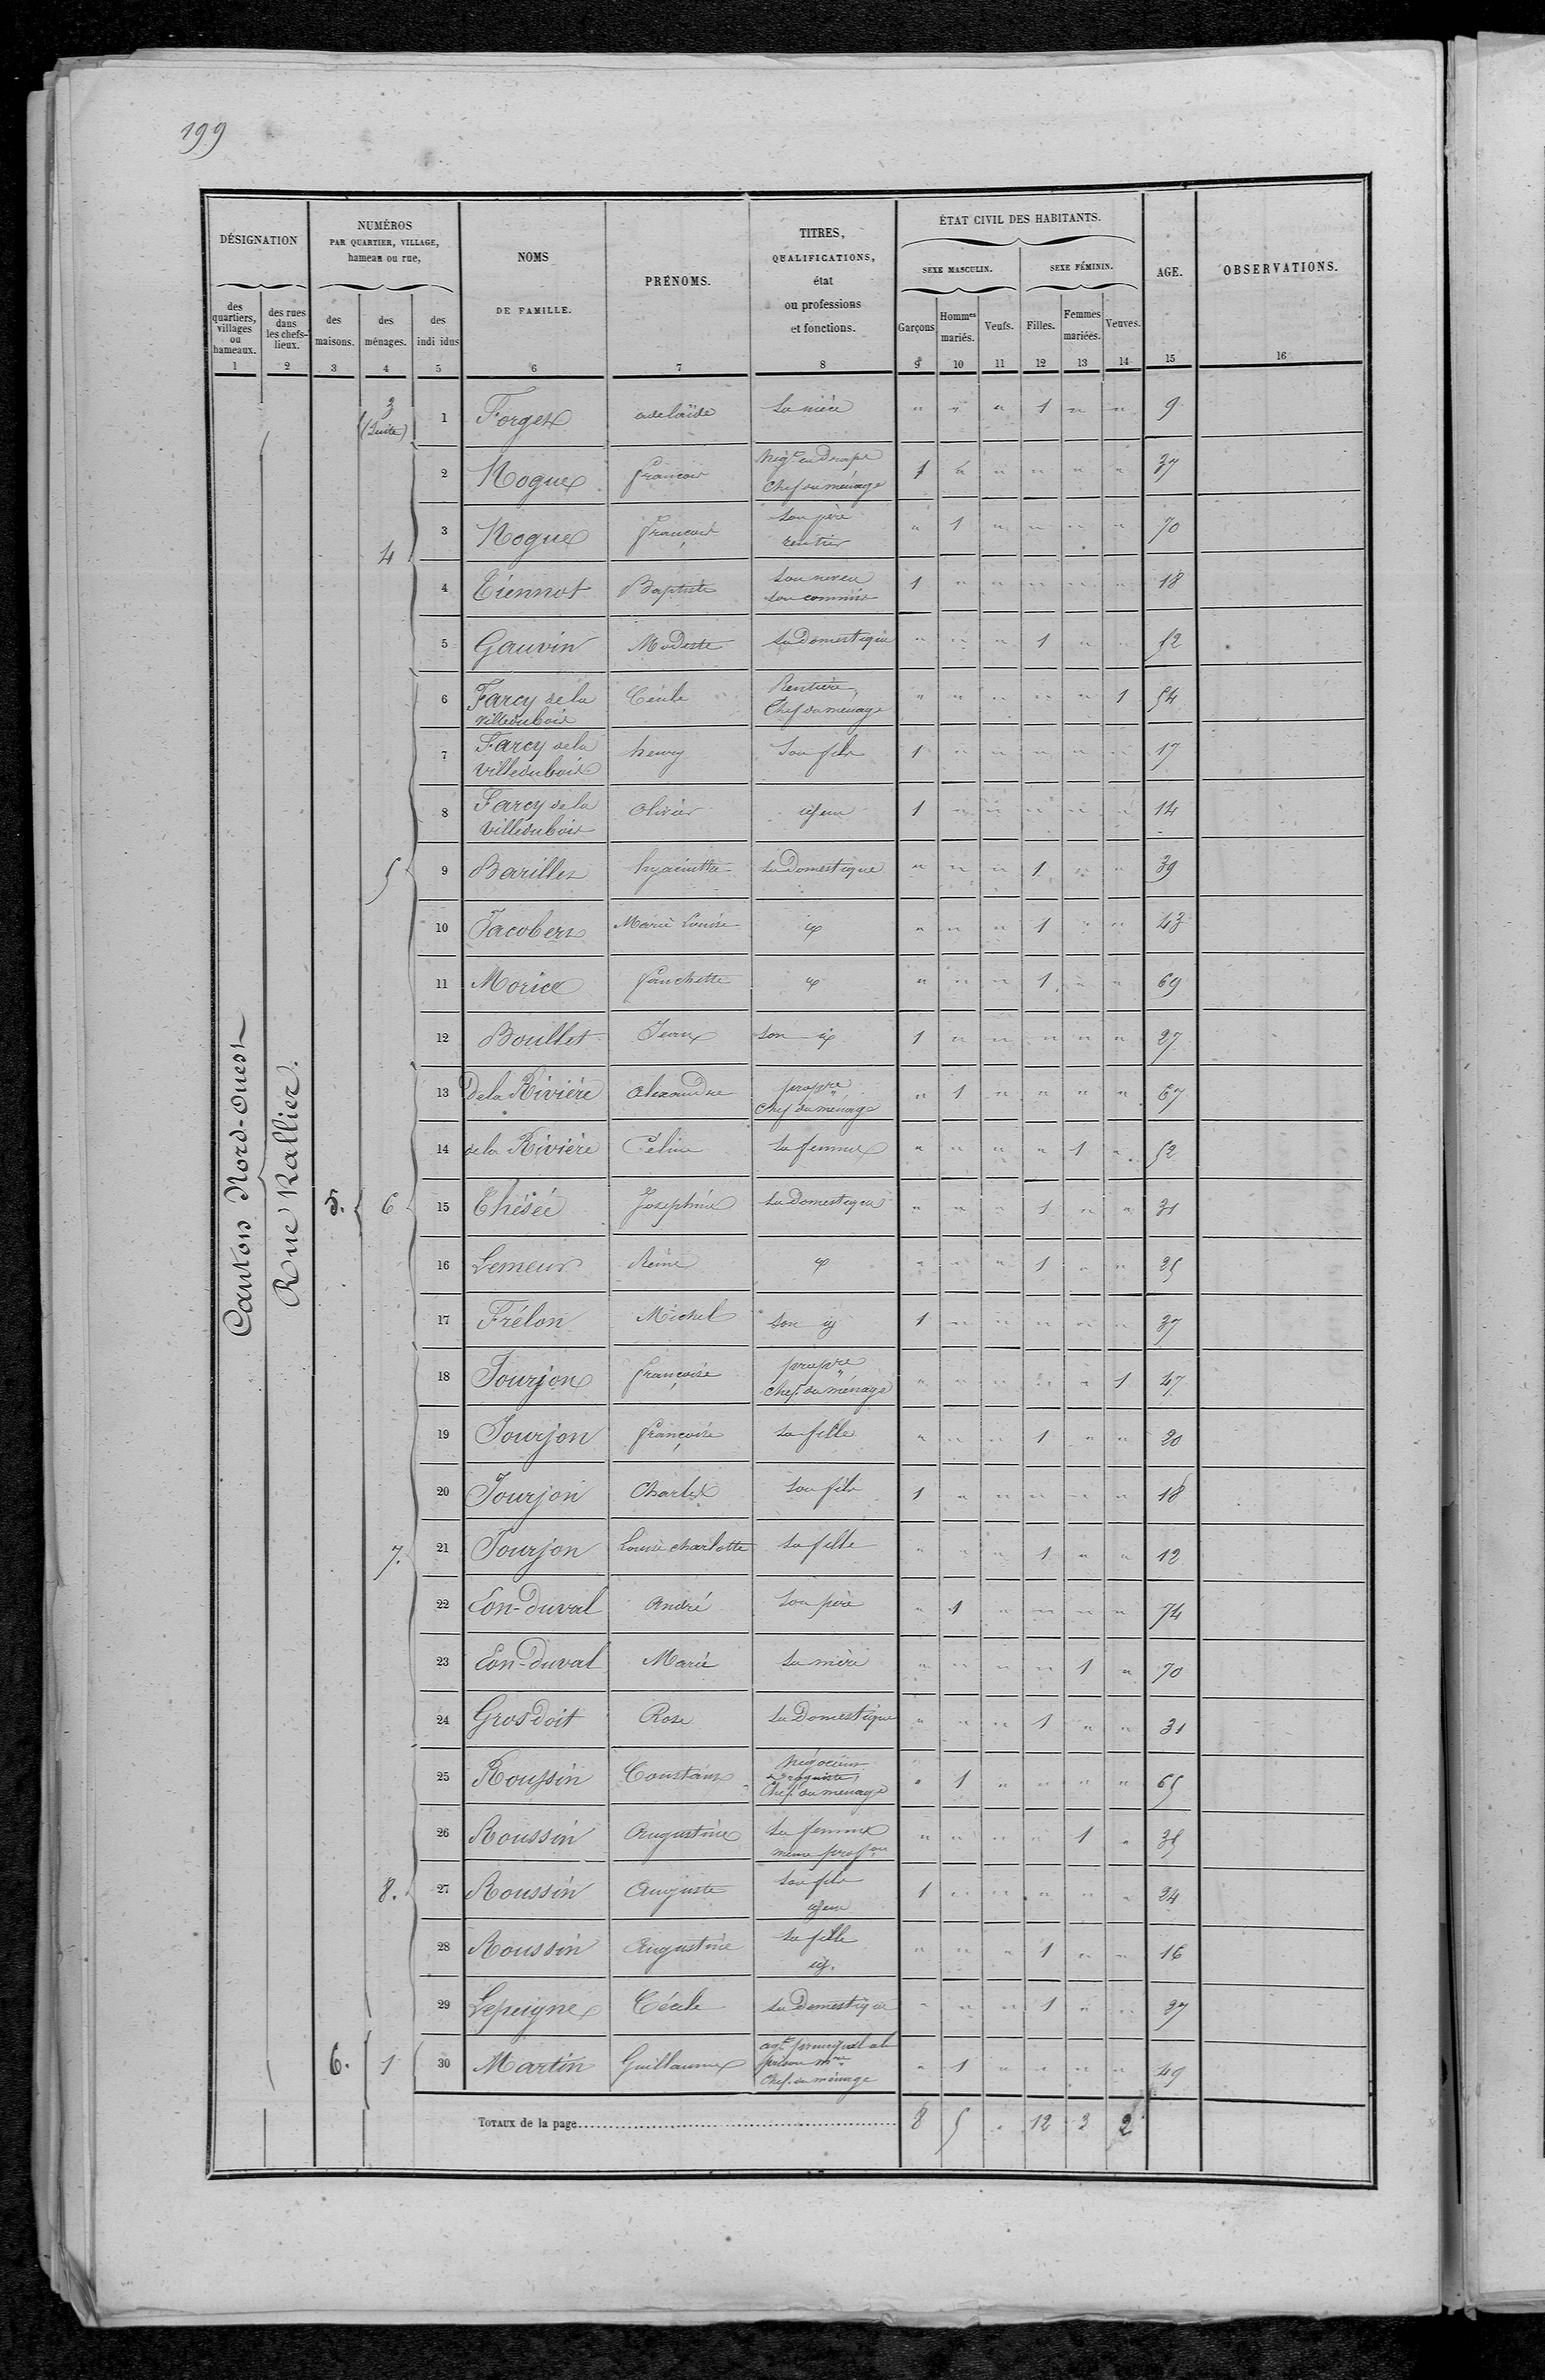 199
DÉSIGNATION
NUMÉROS
PAR QUARTIER, VILLAGE,
hameau ou rue,
NOMS
DE FAMILLE.
PRÉNOMS.
TITRES,
QUALIFICATIONS,
état
ou professions
et fonctions.
ÉTAT CIVIL DES HABITANTS.
SEXE MASCULIN.
SEXE FÉMININ.
AGE.
OBSERVATIONS.
des quartiers, villages ou hameaux.
des rues dans les chefs-lieux.
des maisons.
des ménages.
des indi idus
Garçons
Hommes mariés.
Veufs.
Filles.
Femmes mariées.
Veuves.
1 2 3 4 5 6 7 8 9 10 11 12 13 14 15 16
Canton Nord-Ouest
Rue Rallier.
3 (Suite) 1 Forget adelaïde Sa nièce " " " 1 " " 9
2 Nogues françois Negt en Draps Chef du ménage 1 " " " " " 37
4 3 Nogues françois Son père rentier " 1 " " " " 70
4 Tiennot Baptiste Son neveu son commis 1 " " " " " 18
5 Gauvin Modeste Sa Domestique " " " 1 " " 52
6 Farcy de la villedubois Cécile Rentière, Chef du ménage " " " " " 1 54
7 Farcy de la villedubois henry Son fils 1 " " " " " 17
8 Farcy de la villedubois Olivier idem 1 " " " " " 14
5 9 Bariller hyacinthe Sa Domestique " " " 1 " " 39
10 Jacobert Marie Louise id " " " 1 " " 43
11 Morice fanchette id " " " 1 " " 69
12 Boullet Jean Son id 1 " " " " " 27
13 de la Rivière alexandre propre Chef du ménage " 1 " " " " 67
14 de la Rivière Céline Sa femme " " " " 1 " 52
5. 6 15 Thésée Joséphine Sa Domestique " " " 1 " " 31
16 Lemeur Reine id " " " 1 " " 25
17 Frélon Michel Son id 1 " " " " " 37
18 Jourjon françoise propre chef du ménage " " " " " 1 47
19 Jourjon françoise Sa fille " " " 1 " " 20
20 Jourjon Charles Son fils 1 " " " " " 18
7. 21 Jourjon Louise charlotte Sa fille " " " 1 " " 12
22 Eon-duval André Son père " 1 " " " " 74
23 Eon-duval Marie Sa mère " " " " 1 " 70
24 Grosdoit Rose Sa Domestique " " " 1 " " 31
25 Roussin Constant Négociant droguiste Chef du menage " 1 " " " " 65
26 Roussin Augustine Sa femme même profon " " " " 1 " 35
8. 27 Roussin Auguste Son fils idem 1 " " " " " 24
28 Roussin Augustine Sa fille id. " " " 1 " " 16
29 Lepeigne Cécile Sa Domestique " " " 1 " " 27
6. 1 30 Martin Guillaume agt principal prison mre Chef du ménage " 1 " " " " 49
TOTAUX de la page 8 5 " 12 3 2